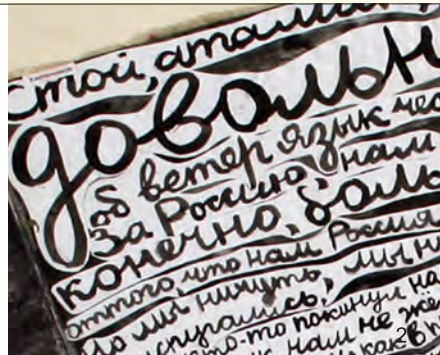 Стой, атаман
довольн
об ветер язык че
За Россию нам
конечно, боль
оттого, что нам Россия
Но мы ничуть, мы н
испугались,
-то покинул на
нам не жё
как в
26